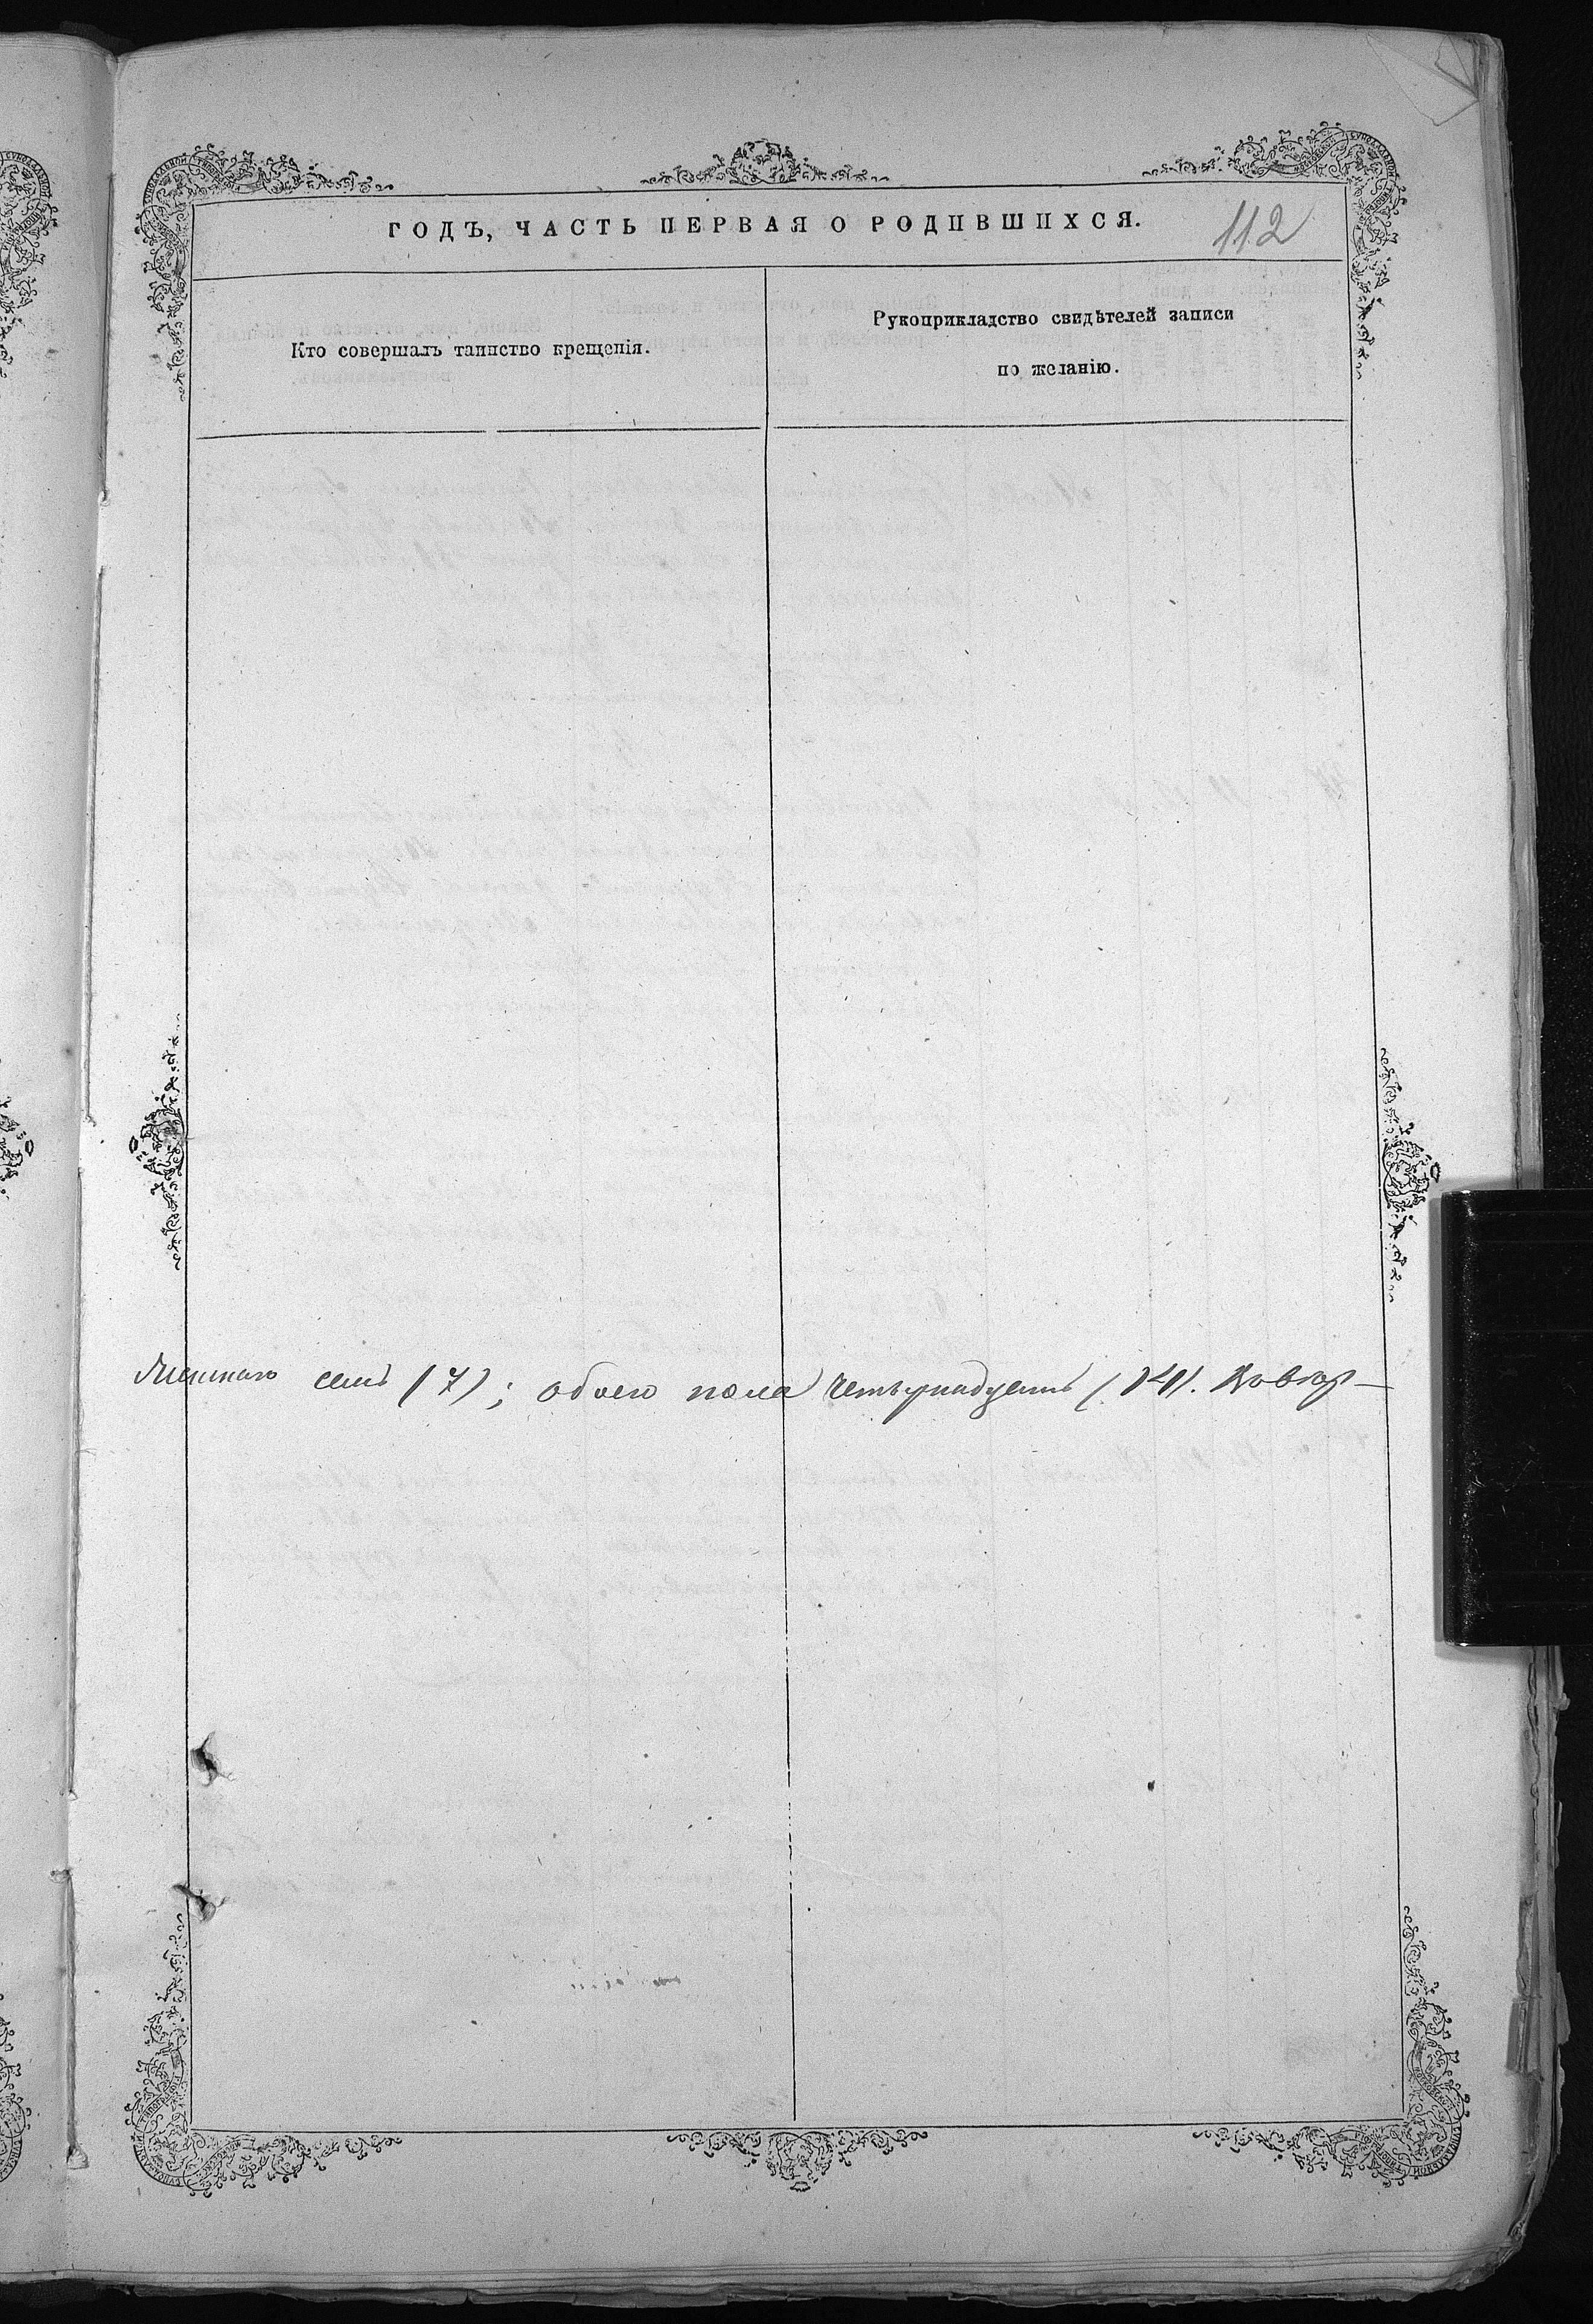 ГОДЪ, ЧАСТЬ ПЕРВАЯ О РОДИВШИХСЯ.
112
Кто совершалъ таинство крещенія.
Рукоприкладство свидѣтелей записи
по желанію.
женскаго семь (7); обоего пола четырнадцать (14).